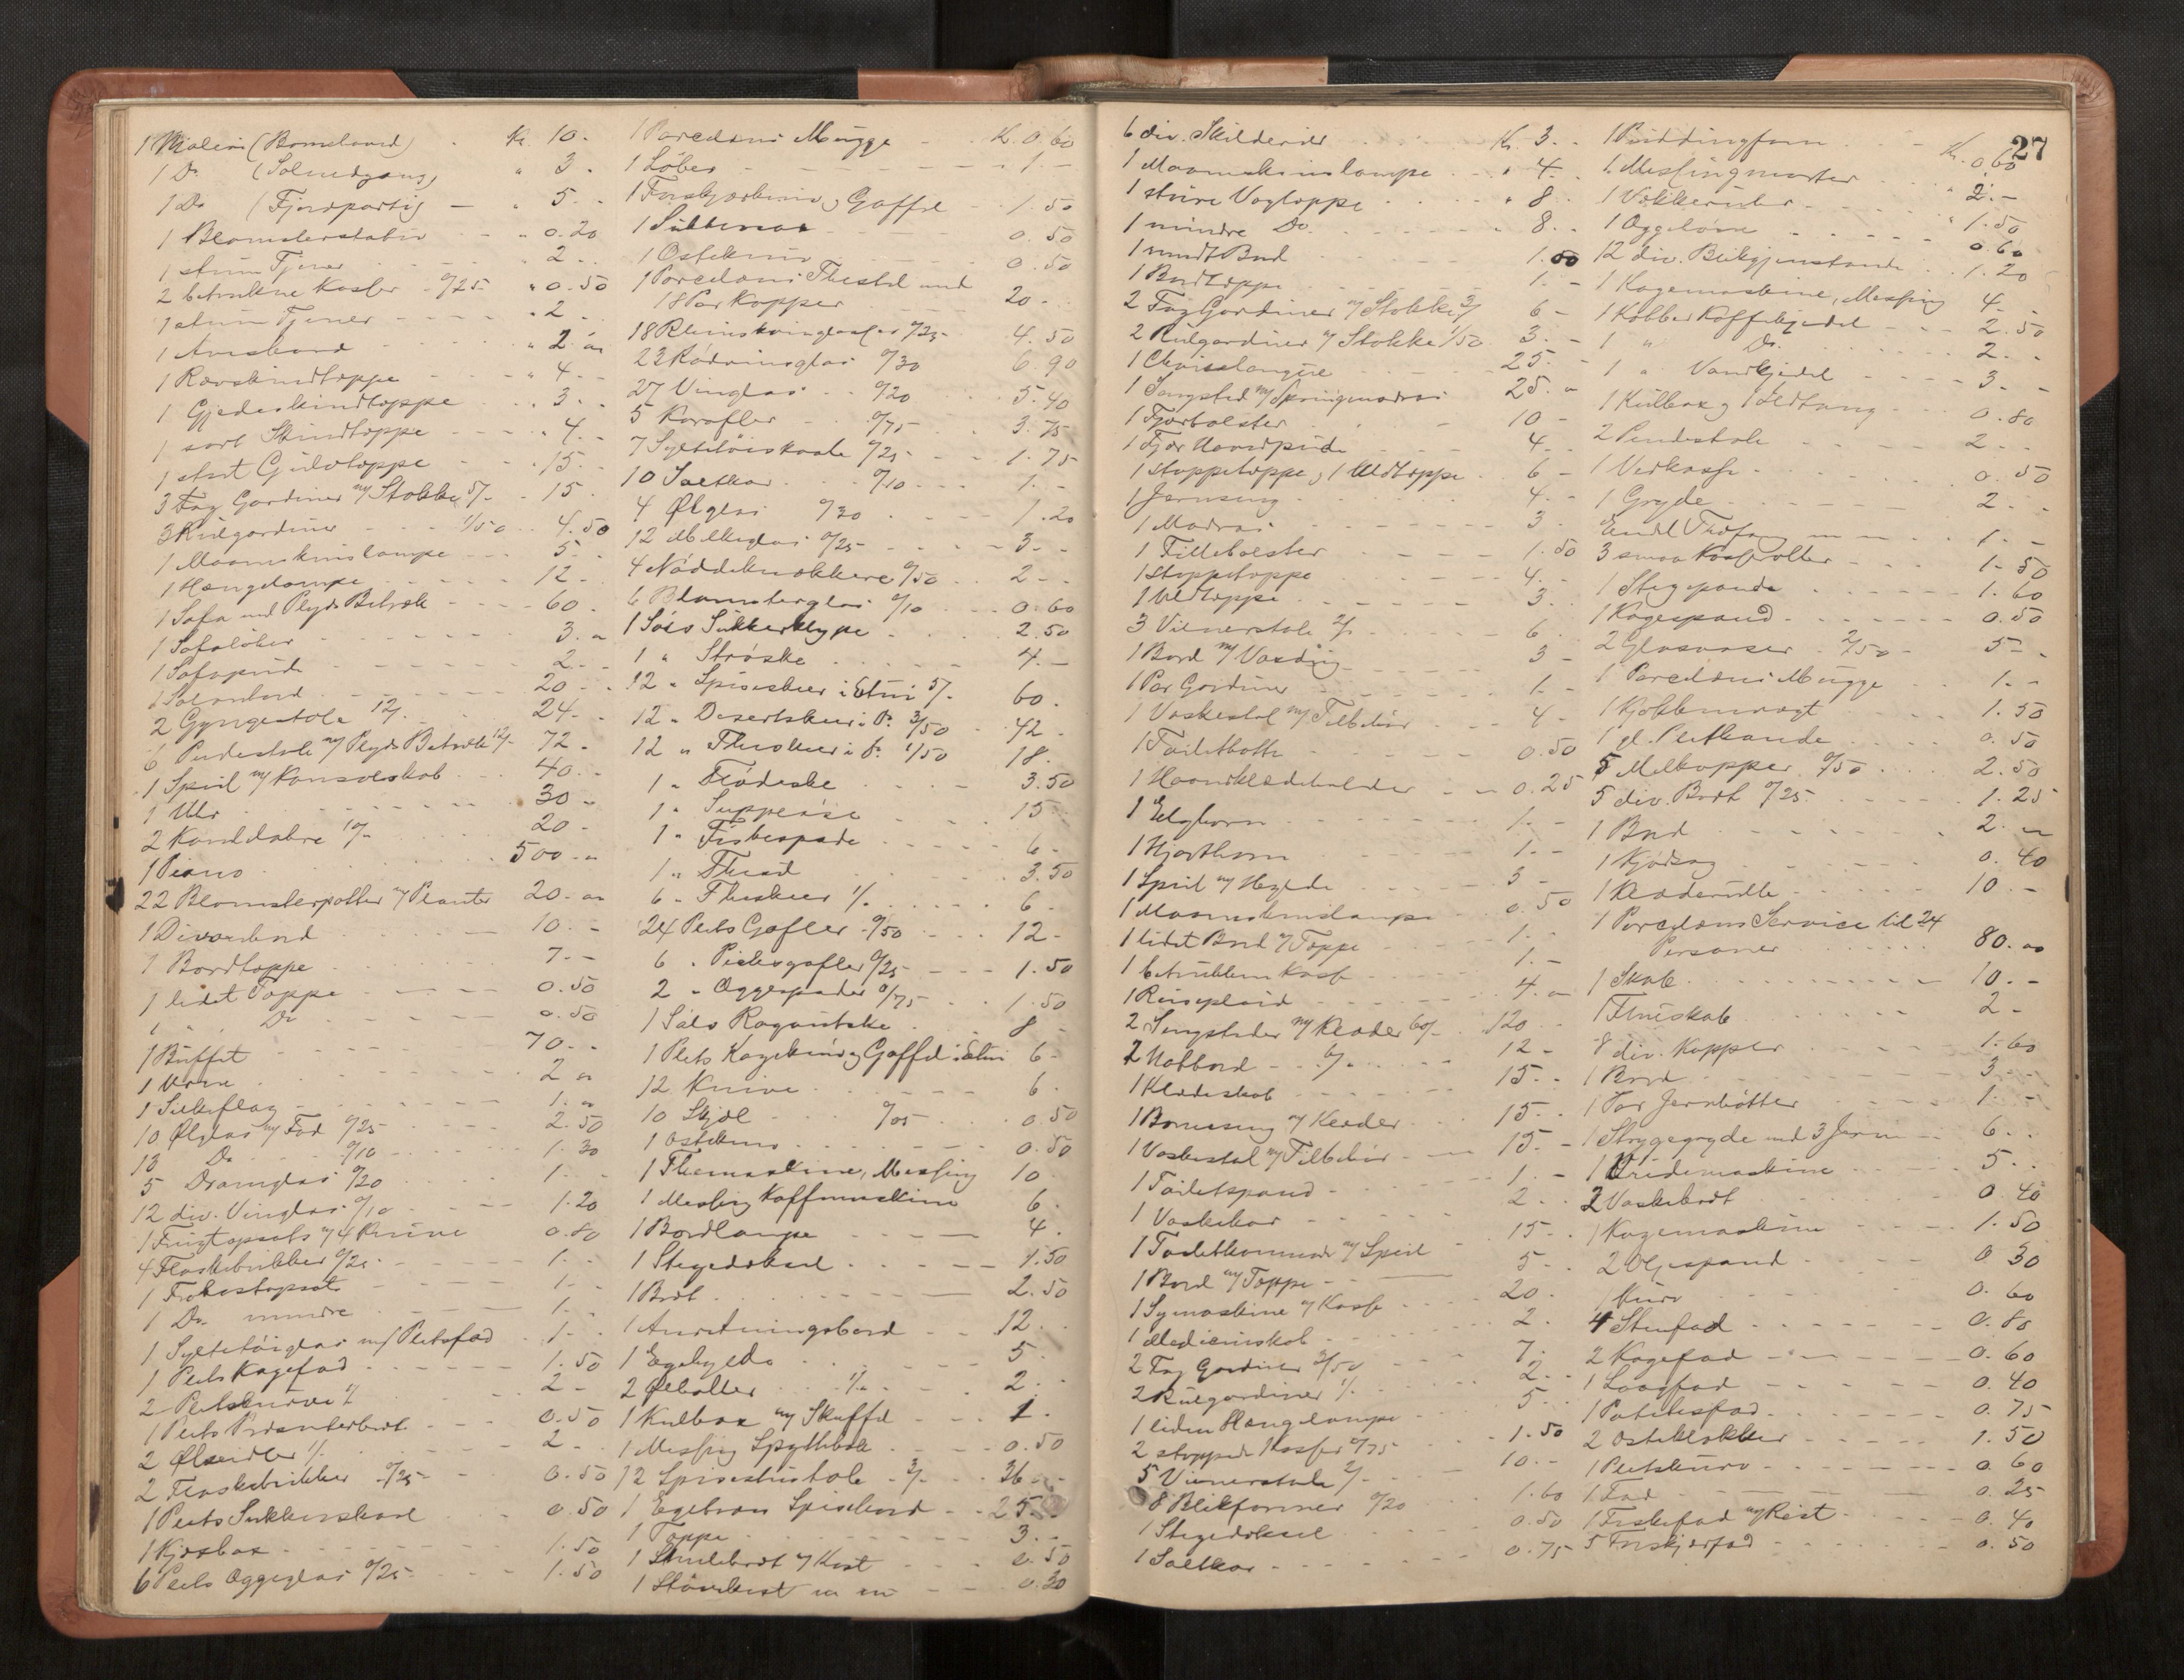 1 Maleri (Bondeland) Kr. 10.-
1 Do (Solnedgang) " 3.
1 Do (Fjordparti) " 5.-
1 Blomsterstativ " 0.20
1 stum Tjener " 2.-
2 betrukne Kasser 0/25 " 0.50
1 stum Tjener " 2.
1 Avisbord " 2.-
1 Rævskindtæppe " 4.-
1 Gjedeskindtæppe " 3.-
1 sort Skindtæppe " 4.-
1 stort Gulvtæppe " 15.-
3 Fag Gardiner m/ Stokke 5/- 15.
3 Rulgardiner 1/50 4.50
1 Maaneskinslampe 5.-
1 Hængelampe 12.-
1 Sofa med Plyds Betræk 60.
1 Sofaløber 3.-
1 Sofapude 2.-
1 Salonbord 20.-
2 Gyngestole 12/- 24.-
6 Pudestole m/ Plyds Betræk 12/- 72.-
1 Speil m/ Konsolskab 40.-
1 Uhr 30.-
2 Kandelabre 10/- 20.-
1 Piano 500.-
22 Blomsterpotter m/ Planter 20.-
1 Divanbord 10.-
1 Bordtæppe 7.-
1 lidet Tæppe 0.50
1 " Do 0.50
1 Buffet 70.-
1 Urne 2.-
1 Silkeflag 1.-
10 Ølglas m/ Fod 0/25 2.50
13 Do 0/10 1.30
5 Dramglas 0/20 1.-
12 div. Vinglas 0/10 1.20
1 Frugtopsats m/ 4 Knive 0.80
4 Flaskebrikker 0/25 1.-
1 Frokostopsats 1.-
1 Do mindre 1.-
1 Syltetøiglas m/ Pletsfad 1.-
1 Plets Kagefad 1.50
2 Pletskurve 1/ 2.-
1 Plets Præsenterbret 0.50
2 Ølseidler 1/. 2.
2 Flaskebrikker 0/25 0.50
1 Plets Sukkerskaal 0.50
1 Kjæxbox 1.50
6 Plets Æggeglas 0/25 1.50
1 Porcelæns Mugge Kr. 0.60
1 Løber 1.-
1 Forskjærkniv og Gaffel 1.50
1 Sukkersax 0.50
1 Ostekniv 0.50
1 Porcelæns Thestel med
18 Par Kopper 20.-
18 Rhinskvinglasser 0/25 4.50
23 Rødvinsglas 0/30 6.90
27 Vinglas 0/20 5.40
5 Karafler 0/75 3.75
7 Syltetøiskaale 0/25 1.75
10 Saltkar 0/10 1.-
4 Ølglas 0/30 1.20
12 Melkeglas 0/25 3.-
4 Nøddeknækkere 0/50 2.-
6 Blomsterglas 0/10 0.60
1 Sølv Sukkerklype 2.50
1 " Strøske 4.-
12 " Spiseskeer i Etui 5/- 60.
12 " Desertskeer i Do 3/50 42.
12 " Theskeer i Do 1/50 18.
1 " Flødeske 3.50
1 " Suppeøse 15
1 " Fiskespade 6.-
1 " Thesid 3.50
6 " Theskeer 1/. 6.
24 Plets Gafler 0/50 12.-
6 " Picklesgafler 0/25 1.50
2 " Æggespader 0/75 1.50
1 Sølv Ragoutske 8.-
1 Plets Kagekniv og Gaffel i Etui 6.-
12 Knive 6.
10 Skjol 0/05 0.50
1 Ostekniv 0.50
1 Themaskine, Messing 10
1 Messing Kaffemaskine 6.
1 Bordlampe 4.
1 Stegedæksel 1.50
1 Bret 2.50
1 Anretningsbord 12.
1 Egehylde 5.
2 Ølboller 1/. 2.
1 Kulbox m/ Skuffel 1.
1 Messing Spyttebak 0.50
12 Spisestuestole 3/. 36.-
1 Egetræs Spisebord 25.-
1 Tæppe 3.-
1 Smulebret m/ Kost 0.50
1 Støvekost 0.30
27
6 div. Skilderier Kr. 3.
1 Maaneskinslampe " 4.-
1 større Vægtæppe " 8.-
1 mindre Do. 8.-
1 rundt Bord 1.00
1 Bordtæppe 1.-
2 Fag Gardiner m/ Stokke 3/ 6.-
2 Rulgardiner m/ Stokke 1/50 3.-
1 Chaiselongue 25.-
1 Sengsted m/ Springmadras 25.-
1 Fjærbolster 10.-
1 Fjær Hovedpude 4.-
1 stoppetæppe, 1 Uldtæppe 6.-
1 Jernseng 4.-
1 Madras 3.
1 Fillebolster 1.50
1 stoppetæppe 4.-
1 Uldtæppe 3.
3 Vienerstole 2/. 6.
1 Bord m/ Voxdug 3.-
1 Par Gardiner 1.-
1 Vaskestol m/ Tilbehør 4.-
1 Toiletbøtte 0.50
1 Haandklædeholder 0.25
1 Elghorn 1.-
1 Hjorthorn 1.-
1 Speil m/ Hylde 3.-
1 Maaneskinslampe 0.50
1 lidet Bord m/ Tæppe 1.-
1 betrukken Kasse 1.-
1 Reiseplaid 4.-
2 Sengsteder m/ Klæder 60/- 120
2 Natbord 6/. 12.-
1 Klædeskab 15.-
1 Barneseng m/ Klæder 15.-
1 Vaskestol m/ Tilbehør 15.-
1 Toiletspand 1.-
1 Vaskekar 2.
1 Toiletkommode m/ Speil 15.-
1 Bord m/ Tæppe 5.-
1 Symaskine m/ Kasse 20.
1 Medicinskab 2.
2 Fag Gardiner 3/50 7.
2 Rulgardiner 1/. 2.-
1 liden Hængelampe 5.-
2 stoppede Kasser 0/75 1.50
5 Vienerstole 2/. 10.-
8 Blikformer 0/20 1.60
1 Stegedæksel 0.50
1 Saltkar 0.75
1 Puddingform Kr. 0.60
1 Messingmorter " 2.-
1 Vækkeruhr " 1.50
1 Æggetårn 0.60
12 div. Blikgjenstande 1.20
1 Kagemaskine, Messing 4.-
1 Kobber Kaffekjedel 2.50
1 " Do. 2.-
1 " Vandkjedel 3.-
1 Kulbox og 1 Ildtang 0.80
2 Pindestole 2.-
1 Vedkasse 0.50
1 Gryde 2.-
Endl Træfang 1.-
3 smaa Kasseroller 1.50
1 Stegepande 1.60
1 Kagespand 0.50
2 Glasvaser 2/50 5.-
1 Porcelæns Mugge 1.-
1 Kjøkkenvægt 1.50
1 gl. Pletkande 0.50
5 Melkopper 0/50 2.50
5 div. Bret 0/25 1.25
1 Bord 2.-
1 Kjødsag 0.40
1 Klæderulle 10.-
1 Porcelæns Service til 24
Personer 80.-
1 Skab 10.-
1 Flueskab 2.-
8 div. Kopper 1.60
1 Bord 3.-
1 Par Jernbøtter 1.-
1 Strygegryde med 3 Jern 6.-
1 Vridemaskine 5.-
2 Vaskebret 0.40
1 Kagemaskine 1.50
2 Oljespand 0.30
1 Kurv 0.60
4 Stenfad 0.80
2 Kagefad 0.60
1 Laagfad 0.40
1 Potetesfad 0.75
2 Osteklokker 1.50
1 Pletskurv 0.60
1 Fad 0.25
1 Fiskefad m/ Rist 0.40
5 Forskjærfad 0.50